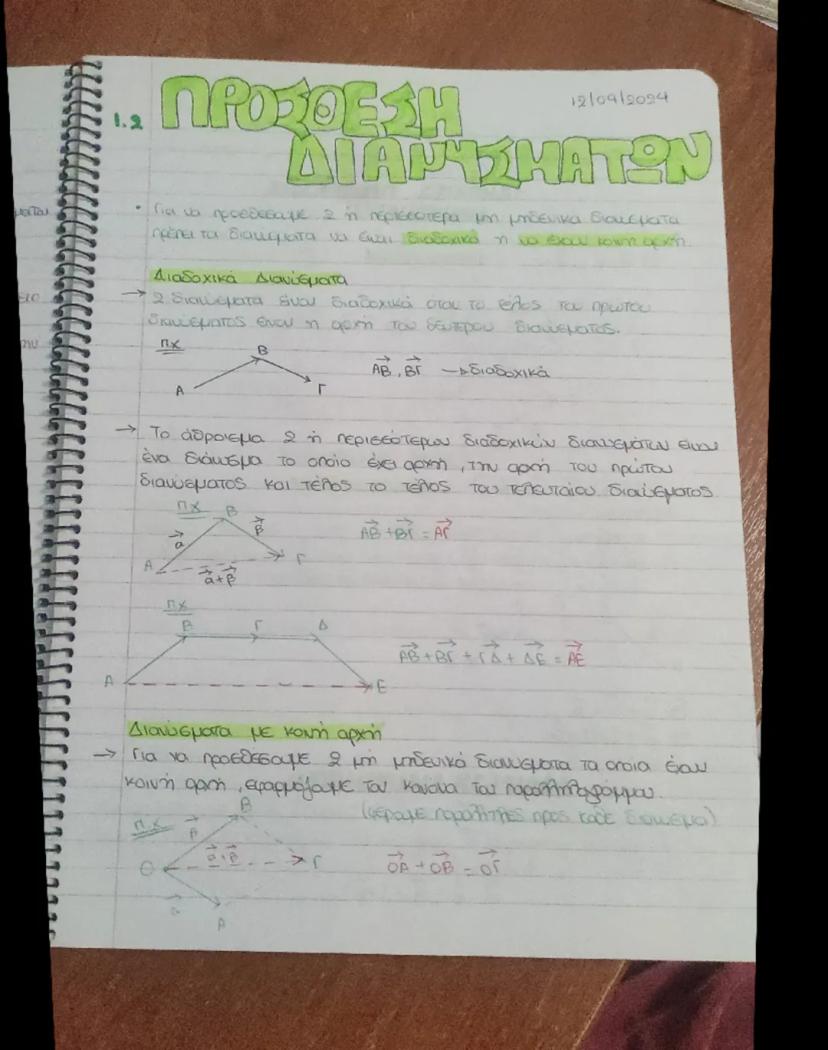 12/09/2024
1.2 ΠΡΟΣΘΕΣΗ
ΔΙΑΝΥΣΜΑΤΩΝ
• Για να προσθέσουμε 2 ή περισσότερα μη μηδενικά διανύσματα
πρέπει τα διανύσματα να είναι διαδοχικά ή να έχουν κοινή αρχή.
Διαδοχικά Διανύσματα
→ 2 διανύσματα είναι διαδοχικά όταν το τέλος του πρώτου
διανύσματος είναι η αρχή του δεύτερου διανύσματος.
πχ
Β
Α
Γ
ΑΒ, ΒΓ → διαδοχικά
→ Το άθροισμα 2 ή περισσότερων διαδοχικών διανυσμάτων είναι
ένα διάνυσμα το οποίο έχει αρχή, την αρχή του πρώτου
διανύσματος και τέλος το τέλος του τελευταίου διανύσματος
πχ
Β
α
β
ΑΒ + ΒΓ = ΑΓ
Α
Γ
α+β
πχ
Β Γ Δ
ΑΒ + ΒΓ + ΓΔ + ΔΕ = ΑΕ
Α
Ε
Διανύσματα με κοινή αρχή
→ Για να προσθέσουμε 2 μη μηδενικά διανύσματα τα οποία έχουν
κοινή αρχή, εφαρμόζουμε τον κανόνα του παραλληλογράμμου.
(φέρουμε παράλληλες προς κάθε διάνυσμα)
πχ
β
Β
α+β
Ο
Γ
ΟΑ + ΟΒ = ΟΓ
α
Α